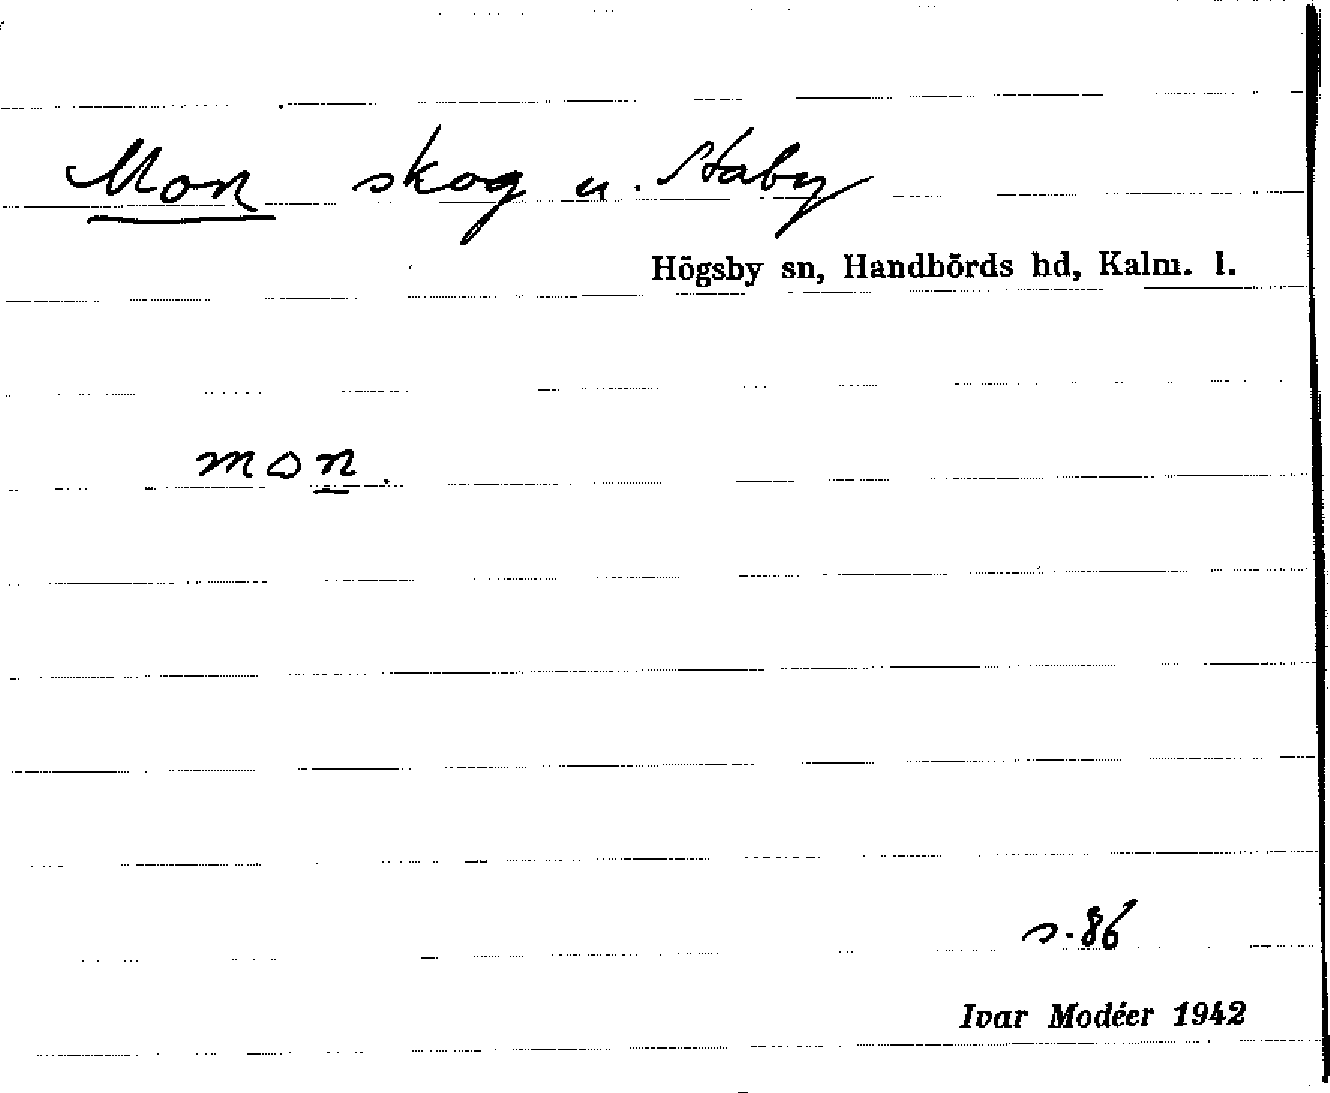 Mon skog u. Staby
Högsby sn, Handbörds hd, Kalm. l.
mon.
s. 86
Ivar Modéer 1942